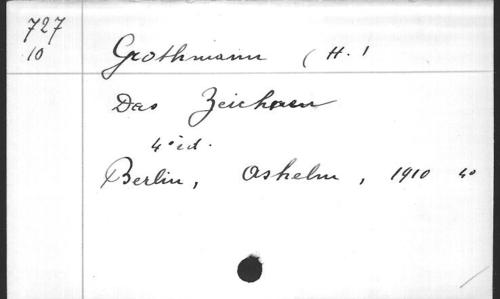 727
10
Grothmann (H.)
Das Zeichnen
4° éd.
Berlin, Oskelm, 1910 4o